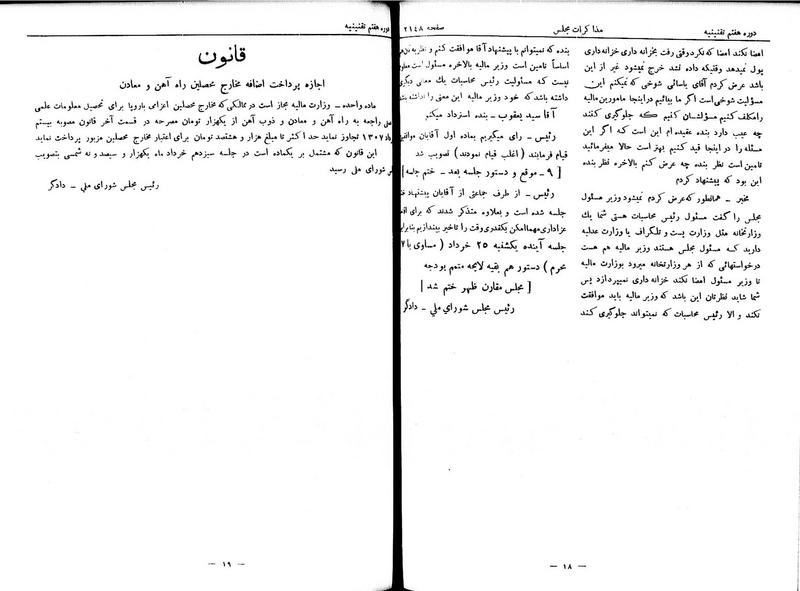 دوره هفتم تقنینیه
مذاکرات مجلس
صفحه ۲۱۴۸
امضا نکند امضا که نکرد وقتی رفت بخزانه داری خزانه داری
پول نمیدهد وقتیکه داده نشد خرج نمیشود غیر از این
باشد عرض کردم آقای یاسائی شوخی که نمیکنم این
مسؤلیت شوخی است اگر ما بیائیم در اینجا مامورین مالیه
را مکلف کنیم مسؤلشان کنیم که جلوگیری کنند
چه عیب دارد بنده عقیده ام این است که اگر این
مسئله را در اینجا قید کنیم بهتر است حالا میفرمائید
تامین است نظر بنده چه عرض کنم بالاخره نظر بنده
این بود که پیشنهاد کردم
مخبر ـ همانطور که عرض کردم نمیشود وزیر مسئول
مجلس را گفت مسئول رئیس محاسبات هستی شما یك
وزارتخانه مثل وزارت پست و تلگراف یا وزارت عدلیه
دارید که مسئول مجلس هستند وزیر مالیه هم هست
درخواستهائی که از هر وزارتخانه میرود بوزارت مالیه
تا وزیر مسئول امضا نکند خزانه داری نمیپردازد پس
شما شاید نظرتان این باشد که وزیر مالیه باید موافقت
نکند و الا رئیس محاسبات که نمیتواند جلوگیری کند
بنده که نمیتوانم با پیشنهاد آقا موافقت کنم و نظریه
اساساً تامین است وزیر مالیه بالاخره مسئول است
نیست که مسئولیت رئیس محاسبات یك معنی دیگری
داشته باشد که خود وزیر مالیه این معنی را نداشته
آقا سید یعقوب ـ بنده استرداد میکنم
رئیس ـ رای میگیریم بماده اول آقایان
قیام فرمایند ( اغلب قیام نمودند ) تصویب شد
[ ۹ ـ موقع و دستور جلسه بعد ـ ختم جلسه ]
رئیس ـ از طرف جماعتی از آقایان پیشنهاد
جلسه شده است و بعلاوه متذکر شدند که برای
عزاداری مهما امکن یکقدری وقت را تاخیر بیندازیم
جلسه آینده یکشنبه ۲۵ خرداد ( مساوی با ۱۷
محرم ) دستور هم بقیه لایحه متمم بودجه
[ مجلس مقارن ظهر ختم شد ]
رئیس مجلس شورای ملی ـ دادگر
— ۱۸ —
دوره هفتم تقنینیه
قانون
اجازه پرداخت اضافه مخارج محصلین راه آهن و معادن
ماده واحده ـ وزارت مالیه مجاز است در ممالکی که مخارج محصلین اعزامی باروپا برای تحصیل معلومات علمی
راجعه به راه آهن و معادن و ذوب آهن از یکهزار تومان مصرحه در قسمت آخر قانون مصوبه بیستم
۱۳۰۷ تجاوز نماید حد اکثر تا مبلغ هزار و هشتصد تومان برای اعتبار مخارج محصلین مزبور پرداخت نماید
این قانون که مشتمل بر یکماده است در جلسه سیزدهم خرداد ماه یکهزار و سیصد و نه شمسی بتصویب
شورای ملی رسید
رئیس مجلس شورای ملی ـ دادگر
— ۱۹ —